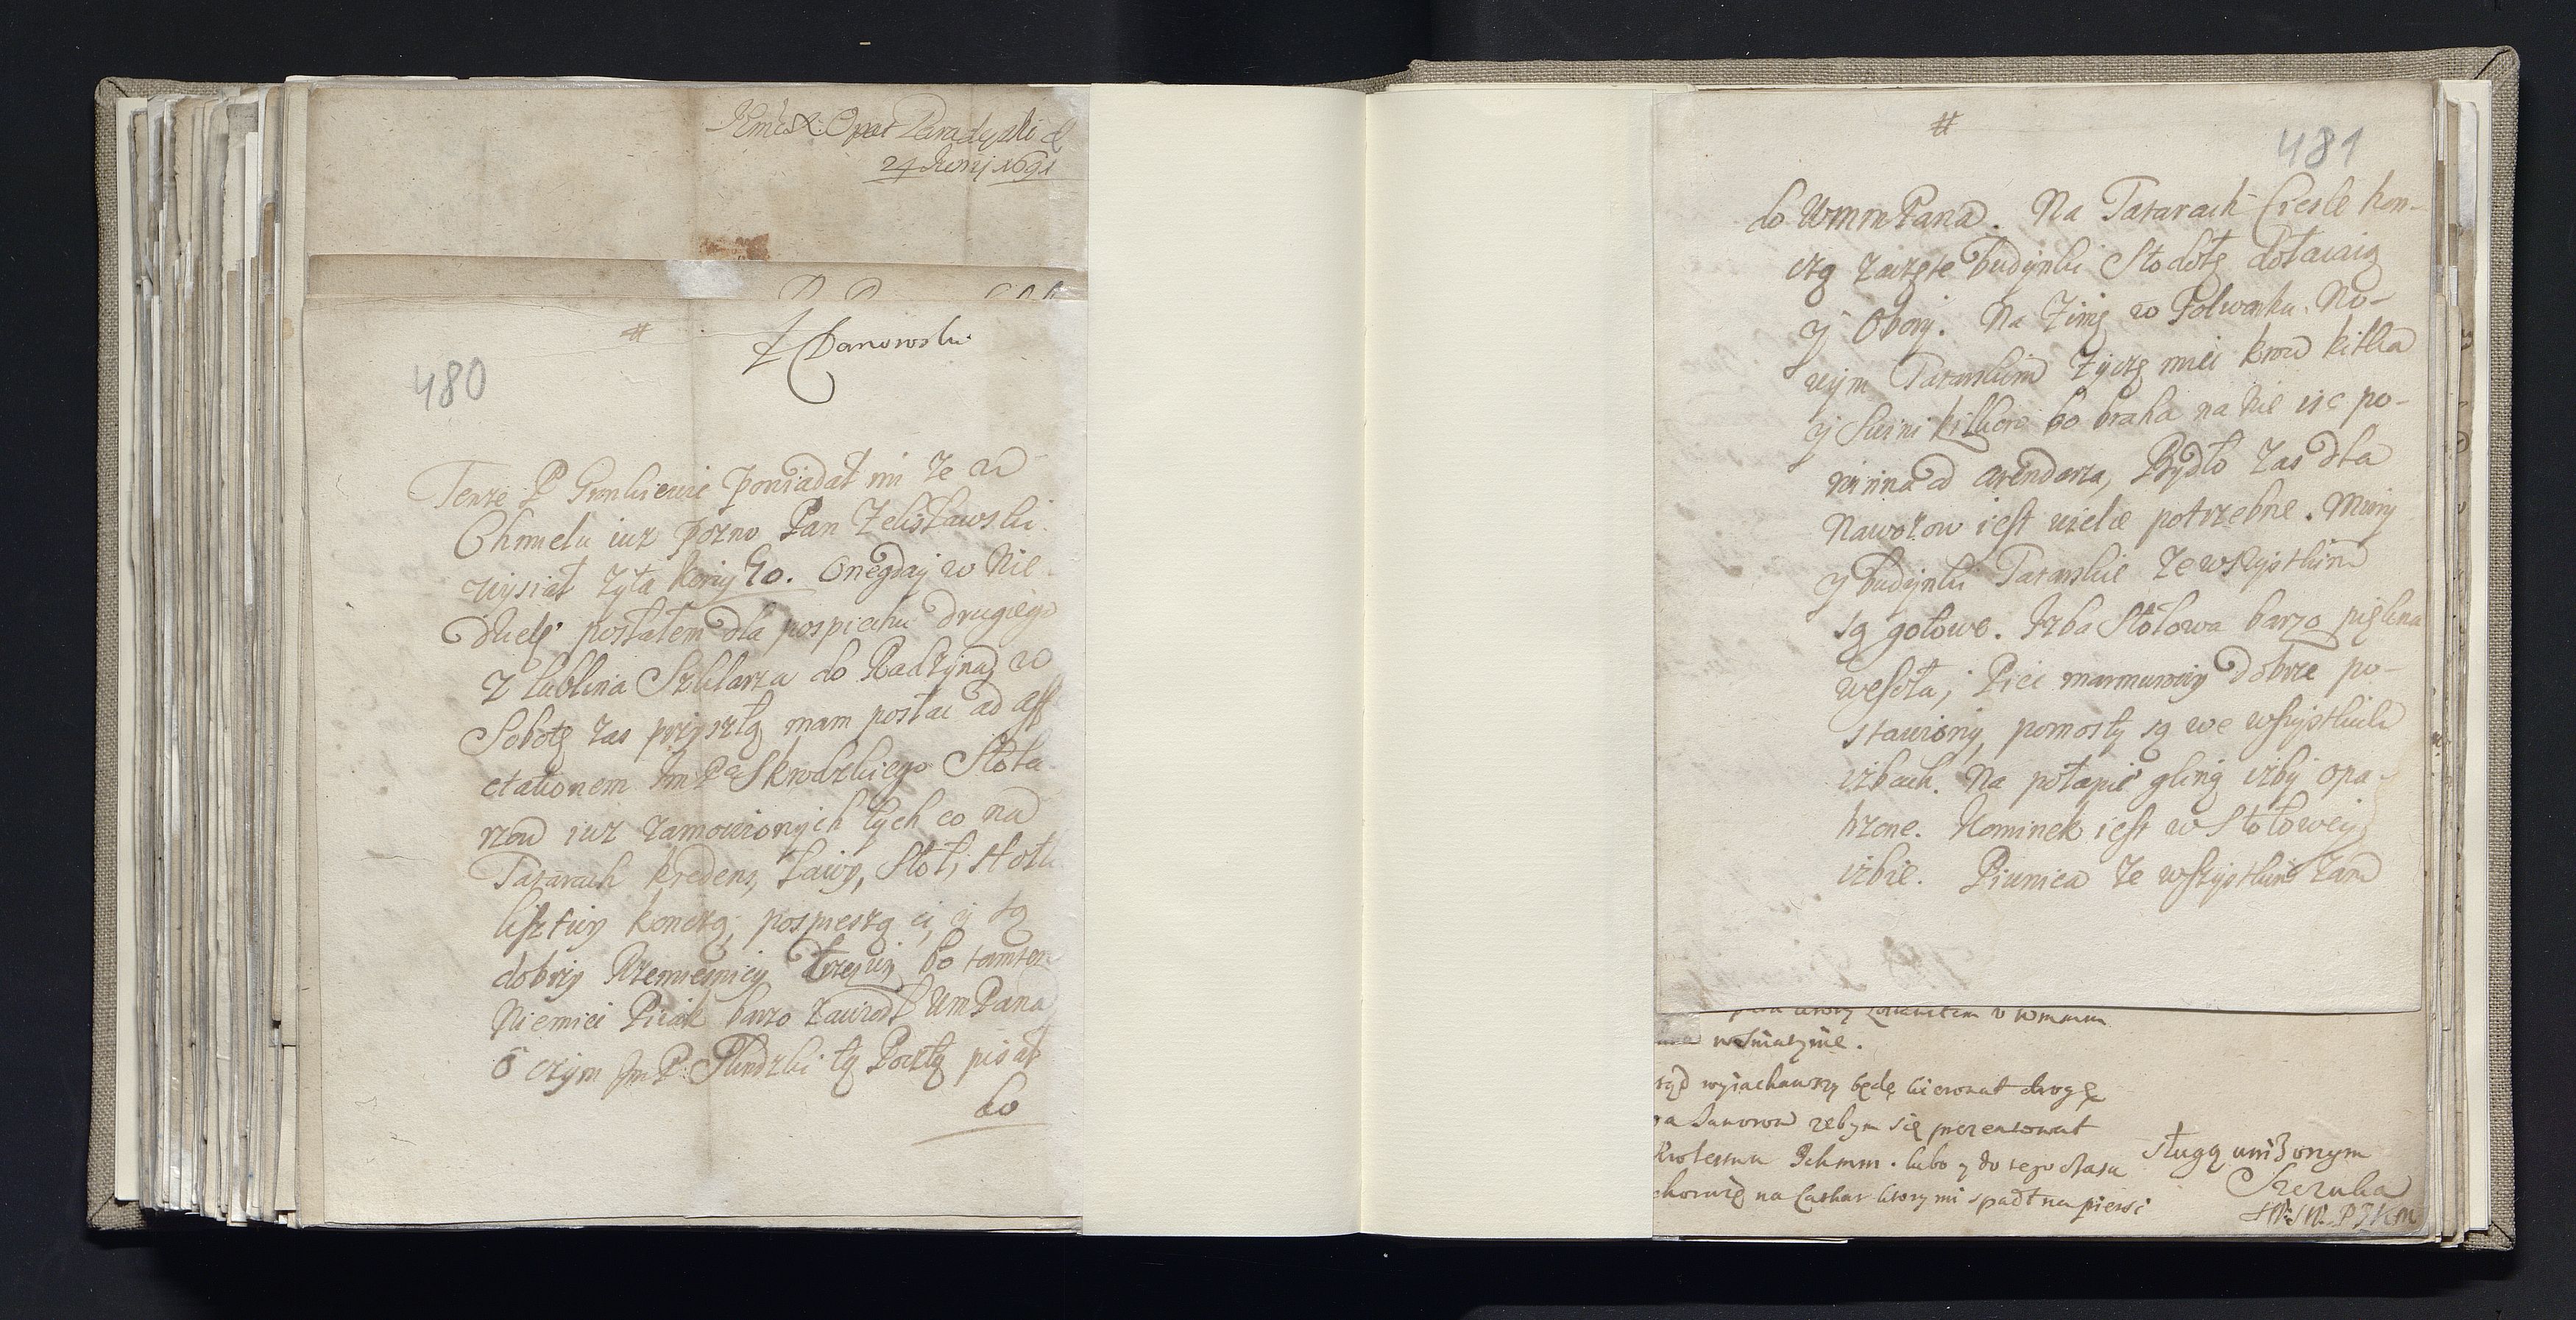 JmćX: Opat Paradyski d
24 Junij 1691
#
480
Tenże P powiadał mi że w
Chmielu iuz pozno Pan Zelisławski
wysiał zyta korcy 40. Onegdaj w Nie
dzielę posłałem dla pospiechu drugiego
z Lublina Szklarza do Radzyna, w
Sobotę zas przyszłą mam posłac ad aff
ectationem Jm Pa Skrodzkiego Stola
rzow iuz zamowionych tych co na
Tatarach kredens, Ławy, Stoł, Stołki
lisztwy konczą, pospieszą ci, ij są
dobrzy Rzemiesnicy trzezwi, bo tamten
Niemiec Pijak barzo zawiodł WmPana
o czym Jm P. tą Pocztą pisał
do
#
481
do WmmPana. Na Tatarach Ciesle kon-
czą zaczęte budynki Stodołę
y Obory. Na Zimę w Folwarku No-
wym Tatarskim zyczę miec krow kilka
y Swini kilkoro bo braha na nie isc po-
winna od Arendarza, Bydło zas dla
Nawozow iest wielce potrzebne. Mury
y budynki Tatarskie ze wszystkim
są gotowe. Izba Stołowa barzo piękna
wesoła, Piec marmurowy dobrze po-
stawiony, pomosty są we wszystkich
izbach. Na połapie gliną izby opa-
trzone. Kominek iest w Stołowey
izbie. Piwnica ze wszystkim zam
wyiachawszy będę kierował drogę
zebym się prezentował
lubo y do tego czasu
na Cathar ktory mi spadł na piersi
sługą unizonym
Szczuka